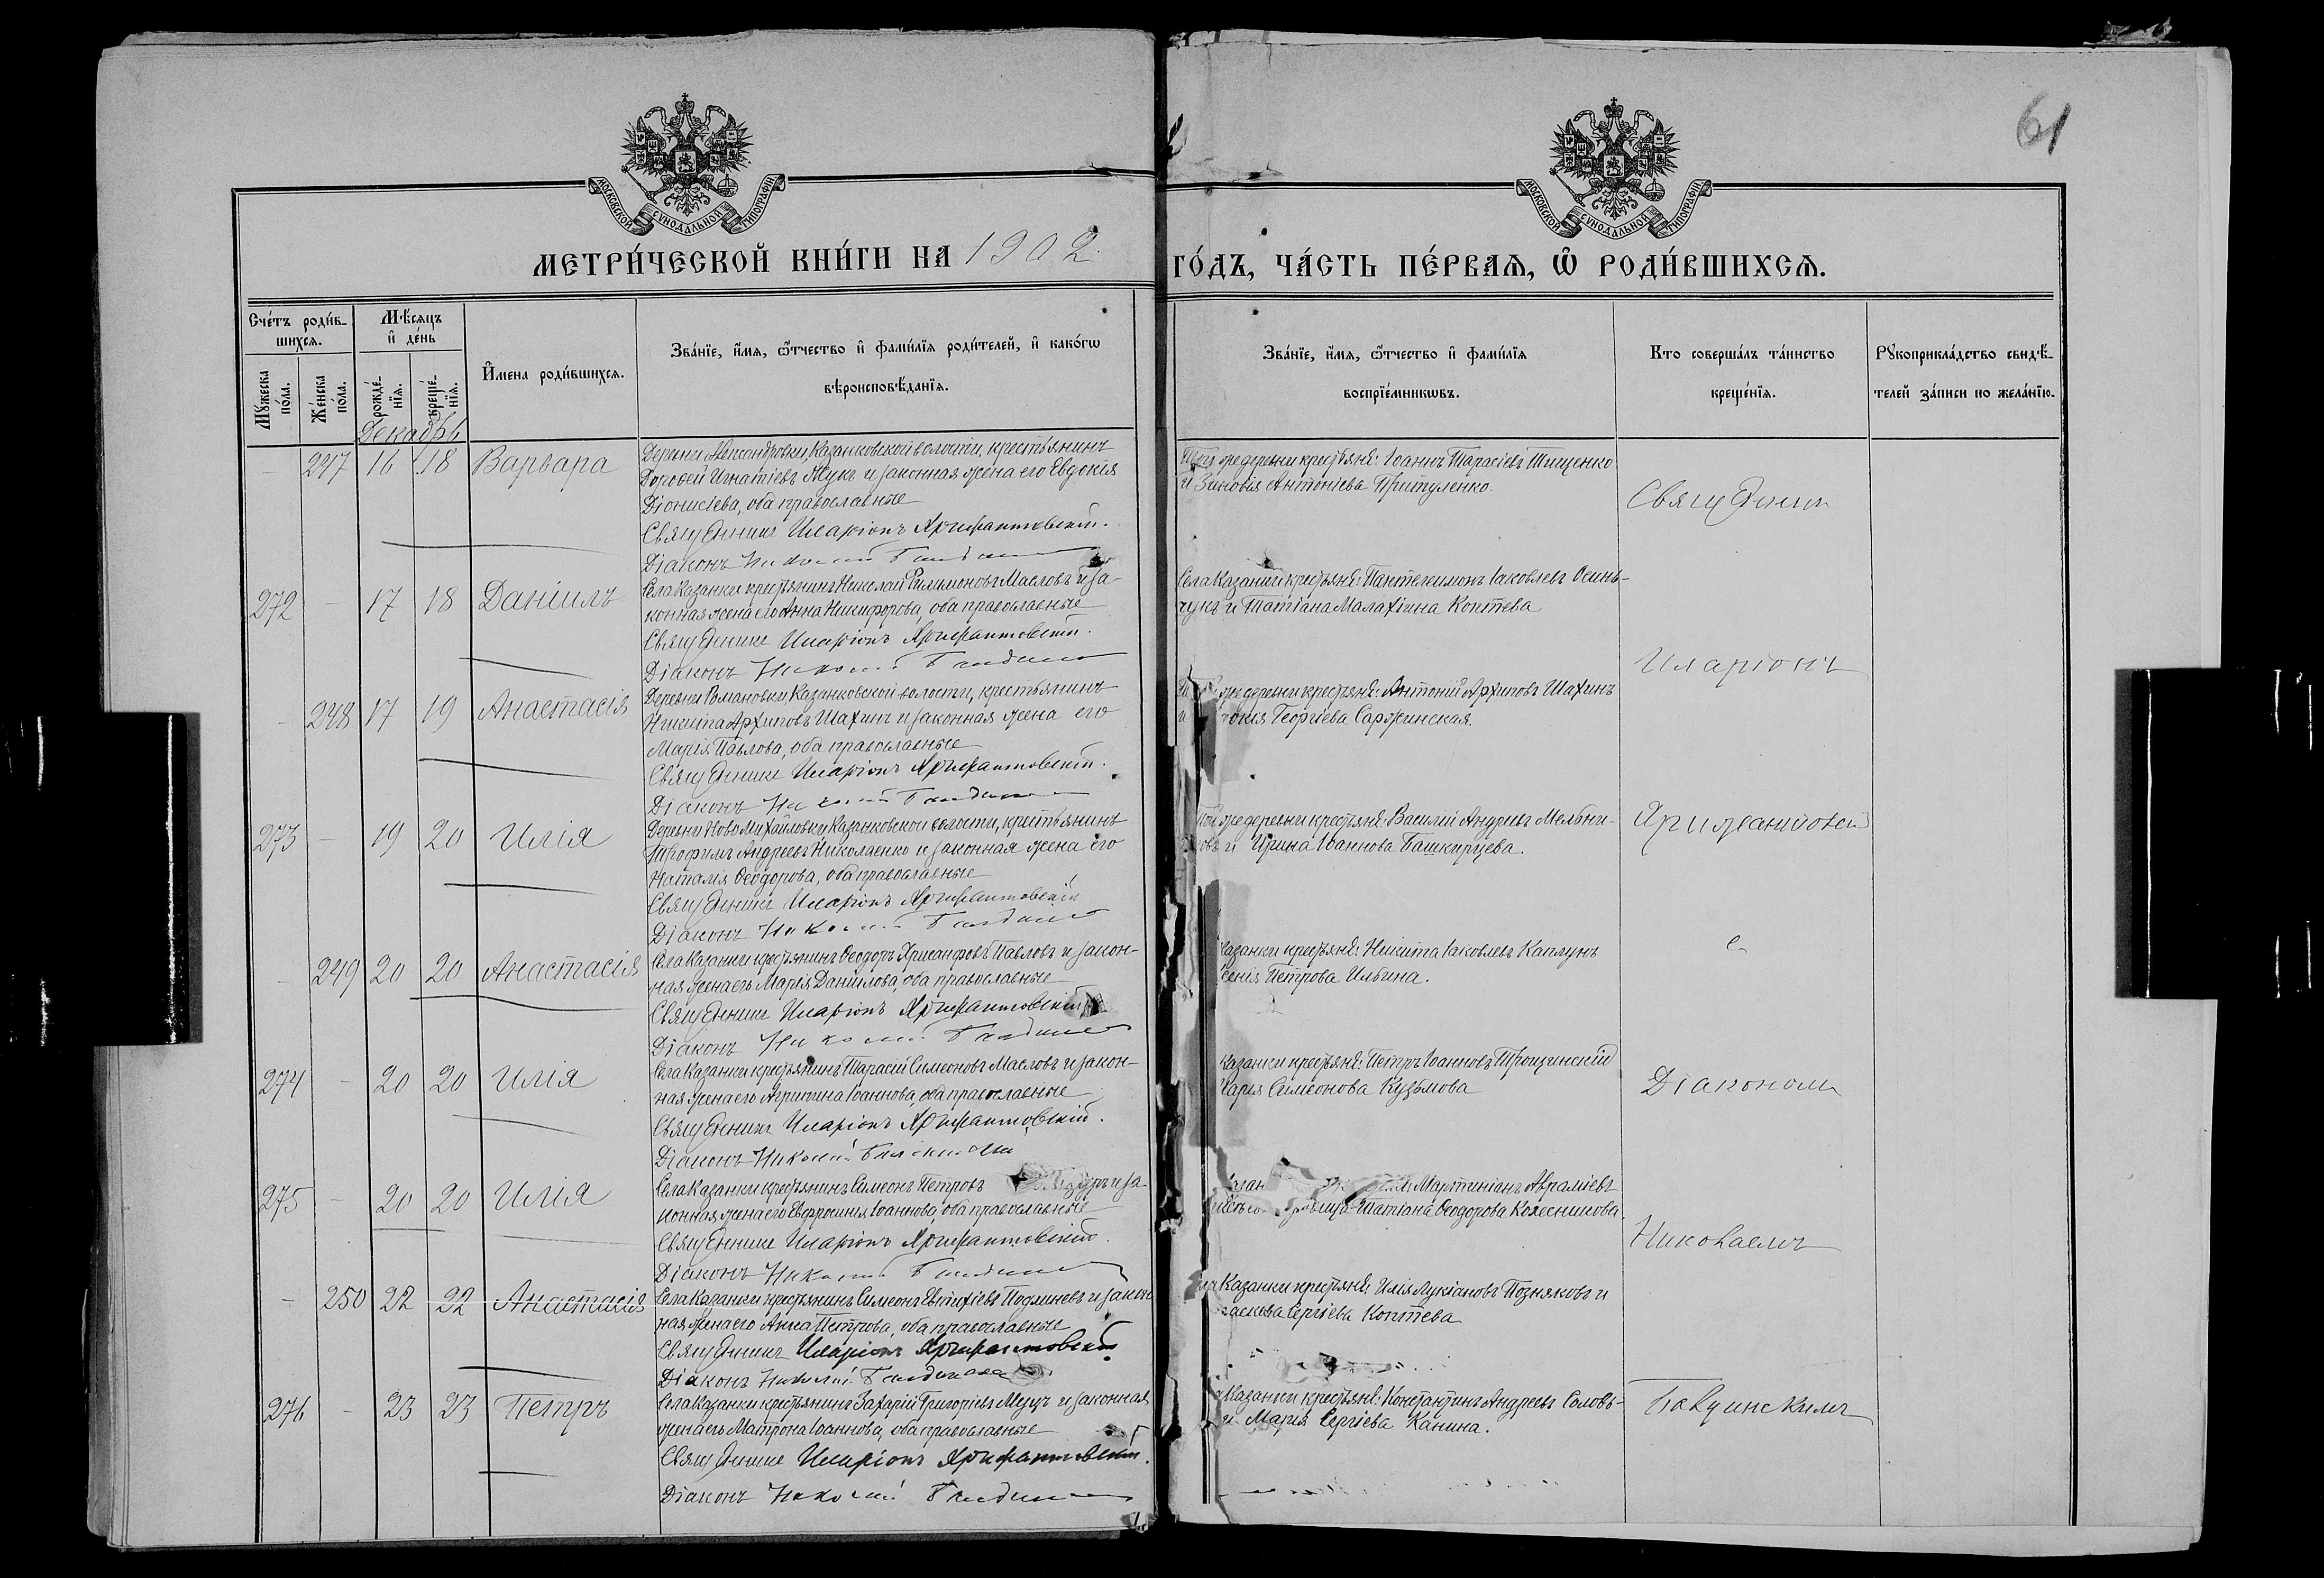 61
МОСКОВСКОЙ СУНОДАЛЬНОЙ ТИПОГРАФІИ
МОСКОВСКОЙ СУНОДАЛЬНОЙ ТИПОГРАФІИ
МЕТРИ́ЧЕСКОЙ КНИ́ГИ НА 1902
ГО́ДЪ, ЧА́СТЬ ПЕ́РВАЯ, Ѡ РОДИ́ВШИХСЯ.
Сче́тъ роди́в-
шихся.
Му́жеска
по́ла.
Же́нска
по́ла.
Мѣ́сяцъ
и҆ де́нь
рожде́-
нїя.
креще́-
нїя.
И҆мена роди́вшихся.
Зва́нїе, и҆́мя, ѻ҆́тчество и҆ фами́лїя роди́телей, и҆ како́гѡ
вѣроисповѣ́данїя.
Зва́нїе, и҆́мя, ѻ҆́тчество и҆ фами́лїя
воспрїе́мникѡвъ.
Кто соверша́лъ та́инство
креще́нїя.
Рꙋкоприкла́дство свидѣ́-
телей за́писи по жела́нїю.
Декабрь
247 16 18 Варвара
Деревни Александровки, Казанковской волости, крестьянинъ
Дороѳей Игнатіевъ Жукъ и законная жена его Евдокія
Діонисіева, оба православные
Священникъ Иларіонъ
Діаконъ Николай
же деревни крестьяне: Іоаннъ Тарасіевъ Тищенко
и Зиновія Антоніева Притуленко.
Священник
272 – 17 18 Даніилъ
Села Казанки крестьянинъ Николай Филимоновъ Масловъ и за-
конная жена его Анна Никифорова, оба православные
Священникъ Иларіонъ
Діаконъ Николай
Села Казанки крестьяне: Пантелеимонъ Іаковлевъ Осинь-
чукъ и Татіана Малахіина Коптева
Иларіонъ
– 248 17 19 Анастасія
Деревни Романовки, Казанковской волости, крестьянинъ
Никита Архиповъ Шахинъ и законная жена его
Марія Павлова, оба православные
Священникъ Иларіонъ
Діаконъ Николай
же деревни крестьяне: Антоній Архиповъ Шахинъ
Георгіева Саржинская.
273 – 19 20 Илія
Деревни Ново Михайловки Казанковской волости, крестьянинъ
Трофимъ Андреевъ Николаенко и законная жена его
Наталія Ѳеодорова, оба православные
Священникъ Иларіонъ
Діаконъ Николай
же деревни крестьяне: Василій Андреевъ Мельни-
и Ирина Іоаннова Башкирцева.
с
– 249 20 20 Анастасія
Села Казанки крестьянинъ Ѳеодоръ Хрисанфовъ Павловъ и закон-
ная жена его Марія Даніилова, оба православные
Священникъ Иларіонъ
Діаконъ Николай
Казанки крестьяне: Никита Іаковлевъ Каплунъ
Петрова Ильина.
274 – 20 20 Илія
Села Казанки крестьянинъ Тарасій Симеоновъ Масловъ и закон-
ная жена его Агрипина Іоаннова, оба православные
Священникъ Иларіонъ
Діаконъ Николай
Казанки крестьяне: Петръ Іоанновъ Трощинскій
Симеонова Кузьмова
Діаконом
275 – 20 20 Илія
Села Казанки крестьянинъ Симеонъ Петровъ и за-
конная жена его Евфросинія Іоаннова, оба православные
Священникъ Иларіонъ
Діаконъ Николай
Мартиніанъ Авраміевъ
Татіана Ѳеодорова Колесникова
Николаемъ
– 250 22 22 Анастасія
Села Казанки крестьянинъ Симеонъ и закон
ная жена его Анна Петрова, оба православные
Священникъ Иларіонъ
Діаконъ Николай
Казанки крестьяне: Илія Лукіановъ Позняковъ и
Сергіева Коптева
276 – 23 23 Петръ
Села Казанки крестьянинъ Захарій Григоріевъ и законная
жена его Матрона Іоаннова, оба православные
Священникъ Иларіонъ
Діаконъ Николай
Казанки крестьяне: Константинъ Андреевъ Соловь-
и Марія Сергіева Канина.